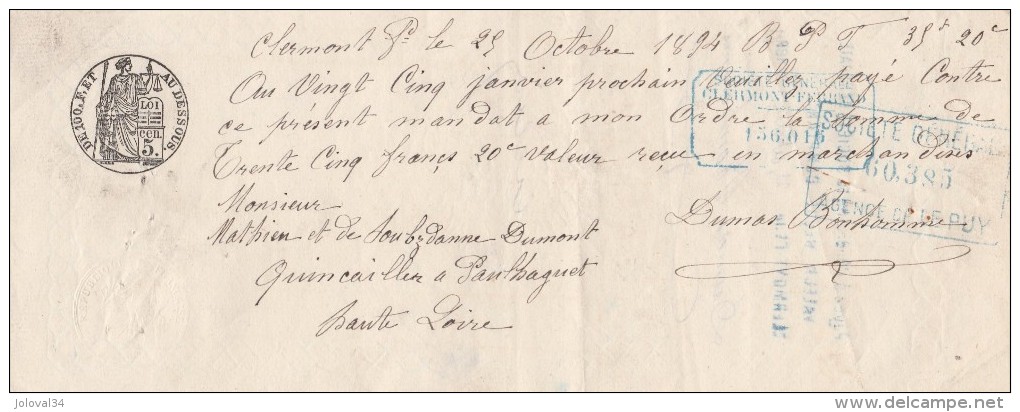 Clermont Fd le 25 Octobre 1894 B P F 35f 20c
Au Vingt Cinq janvier prochain Veuillez payé Contre
ce présent mandat a mon Ordre la somme de
Trente Cinq françs 20c valeur reçue en marchandises
Monsieur
Mathieu et de Soubrdanne Dumont
Quincailler a Paulhaguet
haute Loire
Dumas Bonhomme
DE 100 F. ET AU DESSOUS.
LOI
5 cen.
CLERMONT-FERRAND
156,016
SOCIÉTÉ GÉNÉRALE
60,385
AGENCE DE LE PUY
joloval34
delcampe.net